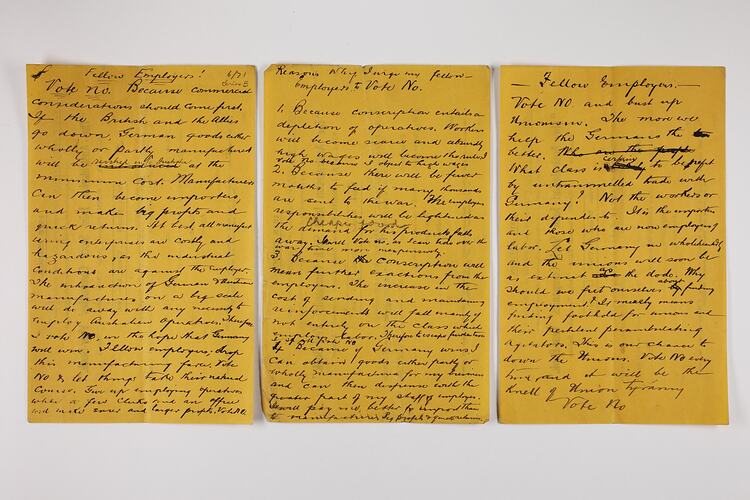 Fellow Employers!
6/71
Vote no. Because commercial
considerations should come first.
If the British and the Allies
go down, German goods either
wholly or partly manufactured
will be at the
minimum cost. Manufacturers
can then become importers,
and make big profits and
quick returns. At best all manufact
uring enterprises are costly and
hazardous, as the industrial
conditions are against the employer.
The introduction of German
manufactures on a big scale
will do away with any necessity to
employ Australian operatives. Therefore
I vote no, in the hope that Germany
will win. Fellow employers, drop
this manufacturing fever, Vote
No & let things take their natural
course. Give up employing operatives
with a few clerks and an office
and make surer and larger profits. Vote No
Reasons Why I urge my fellow-
employers to Vote No.
1. Because conscription entails a
depletion of operatives. Workers
will become scarce and absurdly
high wages will become the rule. I
vote No as I object to high wages
2. Because there will be fewer
mouths to feed if many thousands
are sent to the war. The employers
responsibilities will be heightened as
the demand for his products falls
away. I will Vote no, as I can tide over the
war more
3. Because the Conscription will
mean further exactions from the
employers. The increase in the
cost of sending and maintaining
reinforcements will fall mainly if
not entirely on the class which
employs labor. Therefore to escape further
I will Vote No
4. Because if Germany wins I
can obtain goods either partly or
wholly manufactured for my business
and can then dispense with the
greater part of my staff of employees.
It will pay me better to import than
to manufacture. Big profits & quick returns.
— Fellow Employers. —
Vote NO and bust up
Unionism. The more we
help the Germans the
better.
What class is certain to benefit
by untrammelled trade with
Germany? Not the workers or
their dependents. It is the importers
and those who are now employing
labor. Let Germany in wholeheartedly
and the unions will soon be
as extinct as the dodo. Why
should we put ourselves about finding
employment? It merely means
finding foothold for unions and
their petulent perambulating
agitators. This is our chance to
down the Unions. Vote No every
time and it will be the
knell of Union tyranny
Vote No